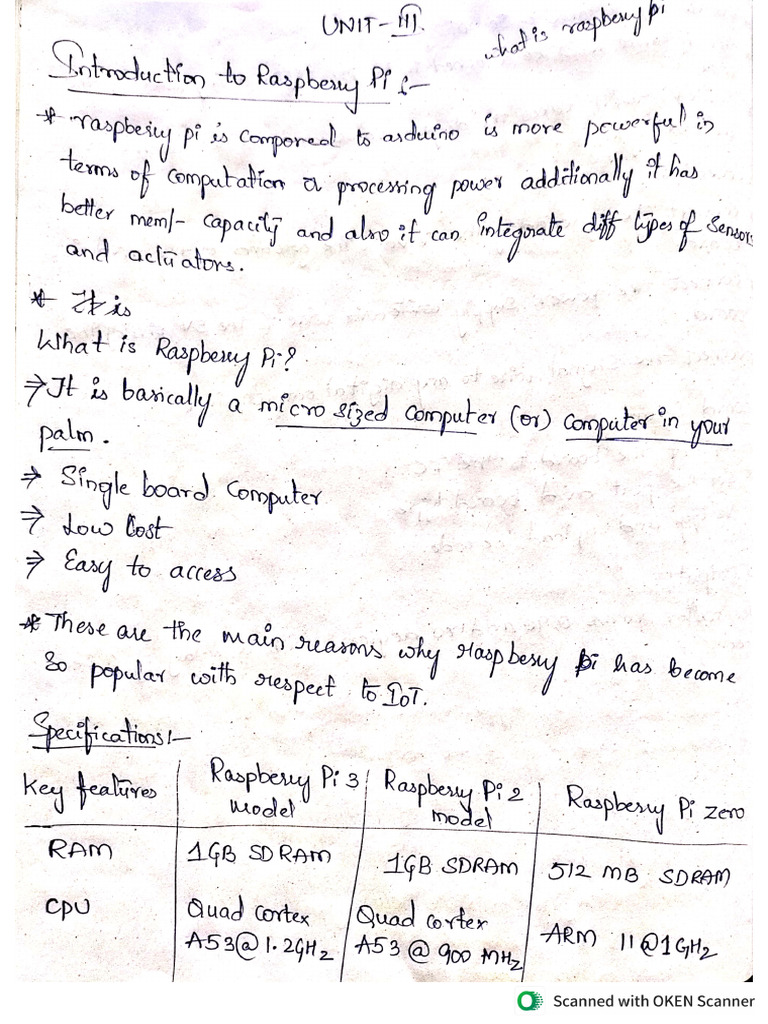 UNIT-III.
what is raspberry pi
Introduction to Raspberry Pi :-
* raspberry pi is compored to arduino is more powerful in
terms of computation & processing power additionally it has
better mem/- capacity and also it can integrate diff types of sensors
and actuators.
* It is
What is Raspberry Pi?
⇒ It is basically a micro sized computer (or) computer in your
palm.
⇒ Single board computer
⇒ Low Cost
⇒ Easy to access
* These are the main reasons why raspberry pi has become
so popular with respect to IoT.
Specifications:-
Key features | Raspberry Pi 3 model | Raspberry Pi 2 model | Raspberry Pi zero
RAM | 1GB SDRAM | 1GB SDRAM | 512 MB SDRAM
CPU | Quad cortex A53@1.2GHz | Quad cortex A53 @ 900 MHz | ARM 11@1GHz
Scanned with OKEN Scanner